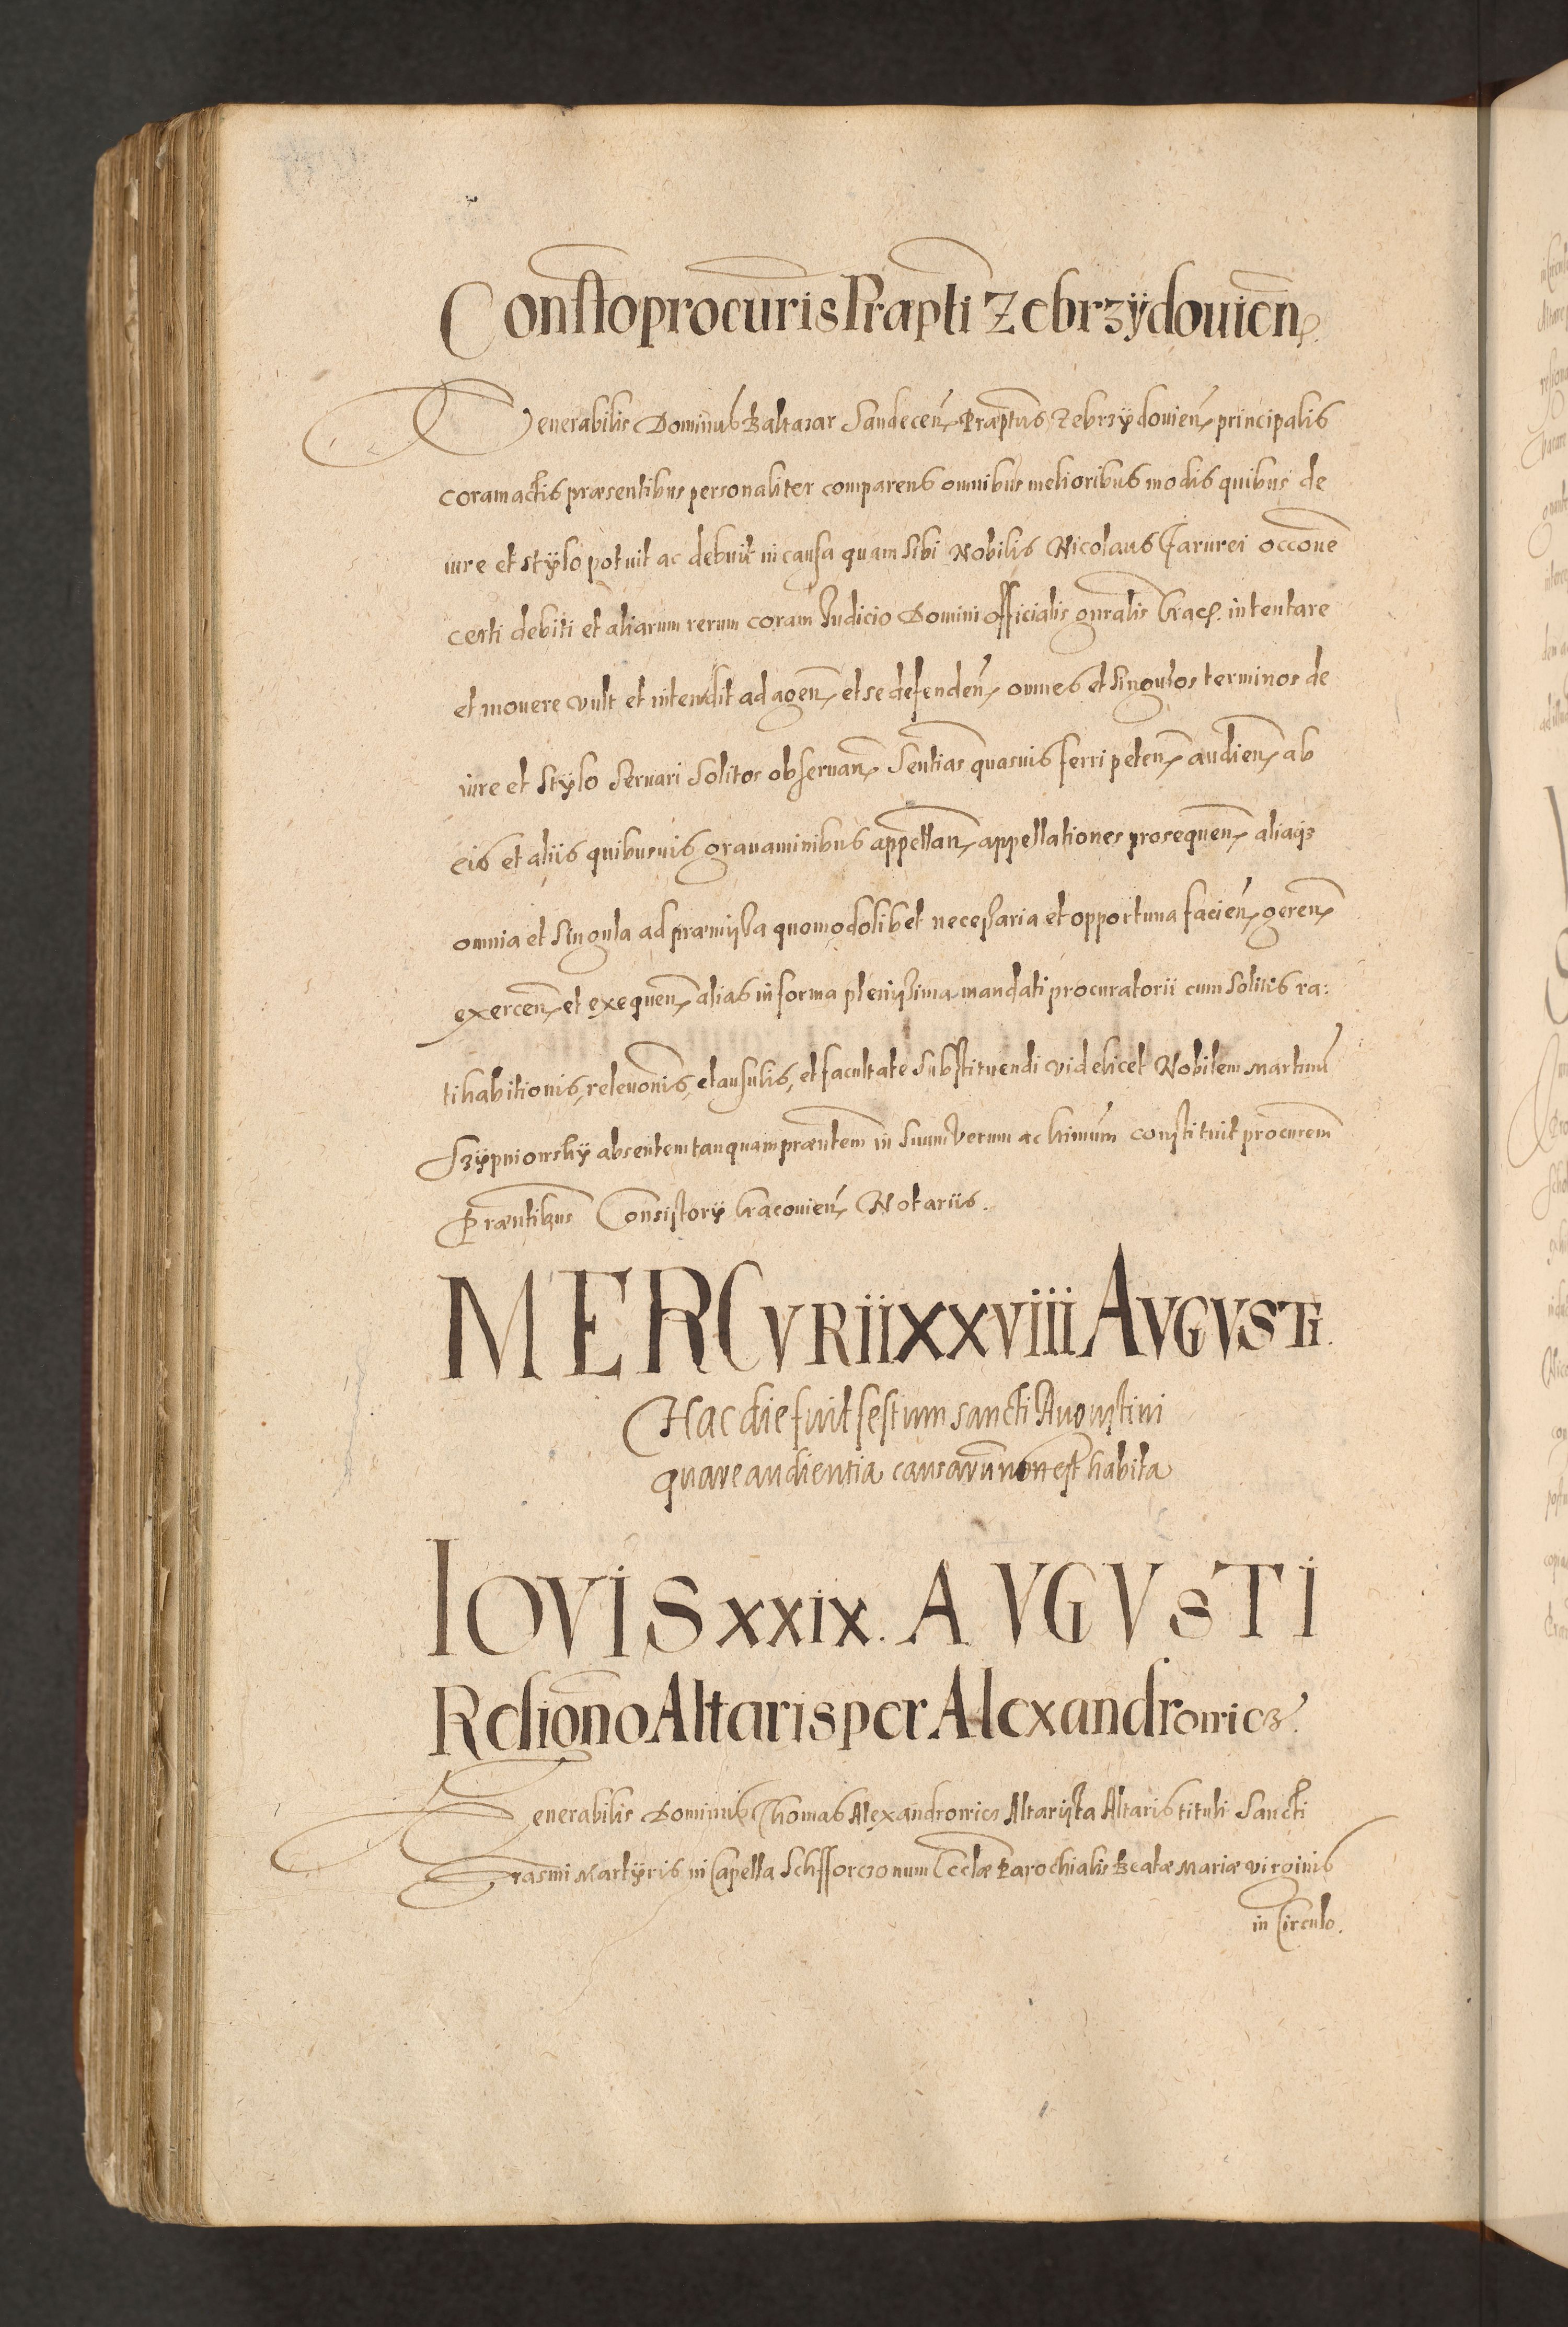 Consto procuris Præpti Zebrzÿdouien.
Venerabilis Dominus Baltazar Sandecen. Præptus Zebrzÿdouien. principalis
coram actis præsentibus personaliter comparens omnibus melioribus modis quibus de
iure et stÿlo potuit ac debuit in causa quam sibi Nobilis Nicolaus occone
certi debiti et aliarum rerum coram Iudicio Domini officialis gnralis Crac. intentare
et mouere vult et intendit ad agen. et se defenden. omnes et singulos terminos de
iure et stÿlo seruari solitos obseruan. Sentias quasuis ferri peten. audien. ab
eis et aliis quibusuis grauaminibus appellan. appellationes prosequen. aliaqz
omnia et singula ad præmissa quomodolibet necessaria et opportuna facien. geren.
exercen. et exequen. alias in forma plenissima mandati procuratorii cum solitis ra:
tihabitionis, releuonis, clausulis, et facultate substituendi videlicet Nobilem Martinu
Szÿpniowskÿ absentem tanquam præntem in suum verum ac ltimum constituit procurem
Præntibus Consistorÿ Cracouien. Notariis.
MERCVRII XXVIII AVGVSTI.
Hac die fuit festum sancti Augustini
quare audientia causarum non est habita
IOVIS XXIX. AVGVSTI
Resiono Altaris per Alexandrowicz.
Venerabilis Dominus Thomas Alexandrowicz Altarista Altaris tituli Sancti
Erasmi Martÿris in Capella Schfforczonum Ecclæ Parochialis Beatæ Mariæ virginis
in Circulo.